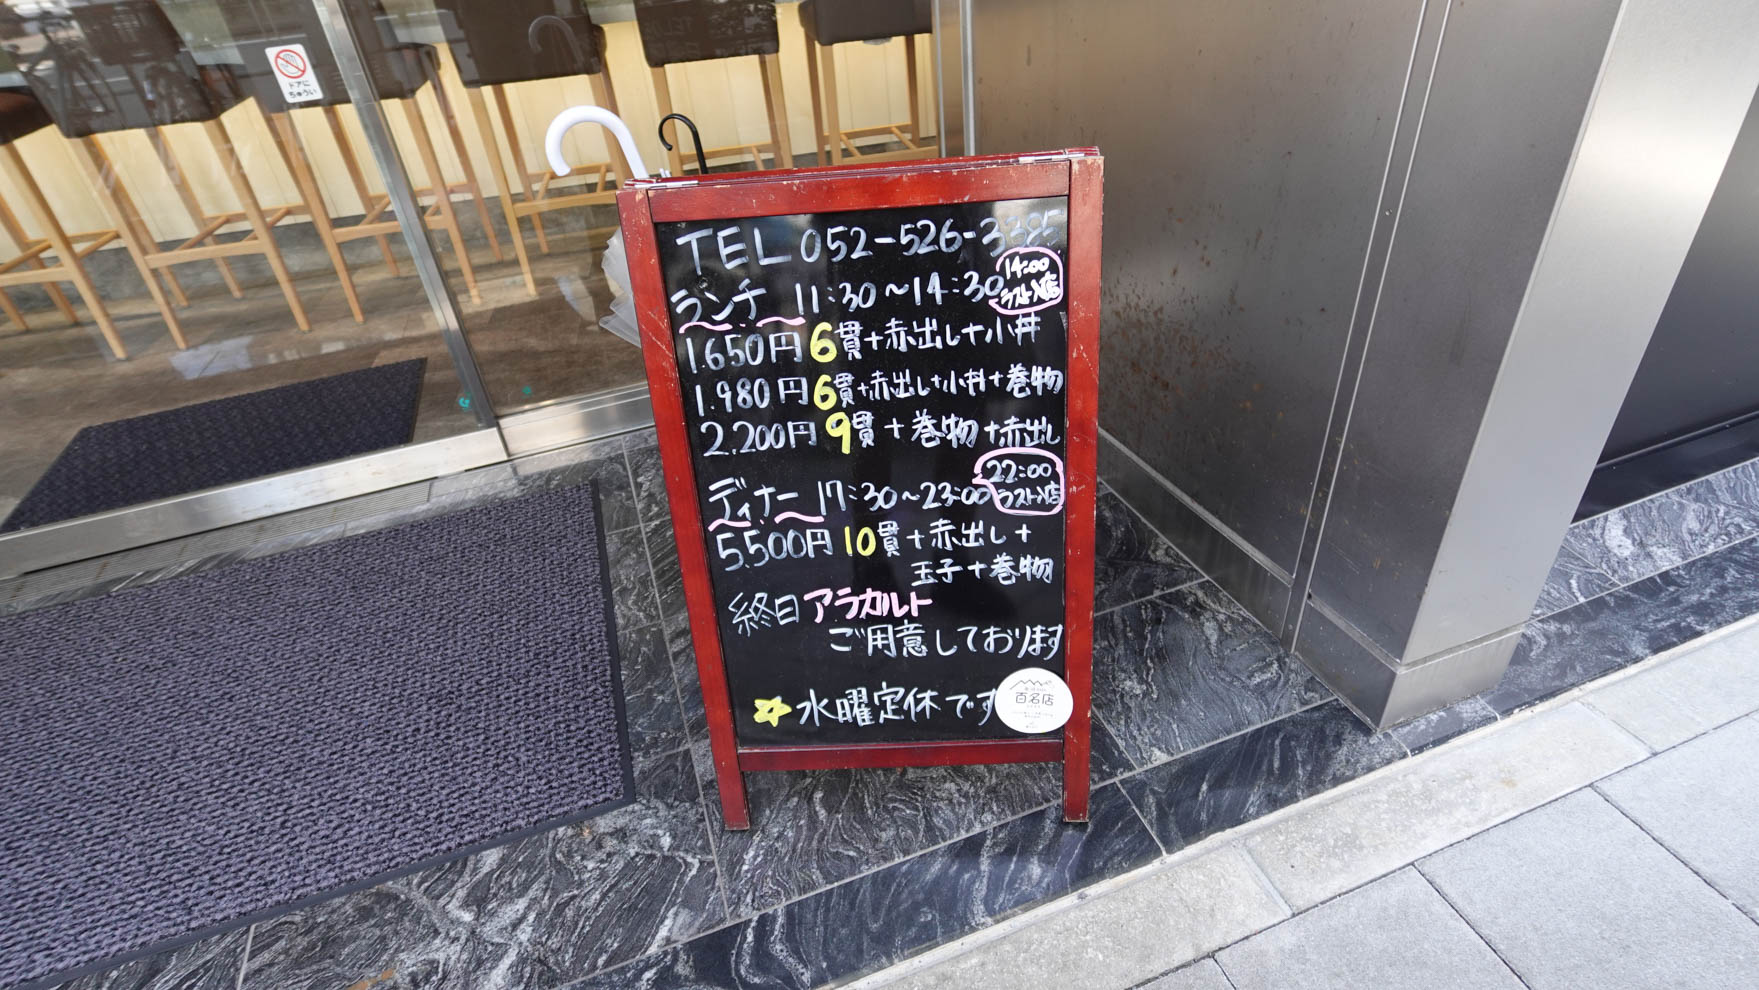 ドアに
ちゅうい
TEL 052-526-3385
ランチ 11:30~14:30
14:00
ラスト入店
1.650円 6貫+赤出し+小丼
1.980円 6貫+赤出し+小丼+巻物
2.200円 9貫+巻物+赤出し
ディナー 17:30~23:00
22:00
ラスト入店
5.500円 10貫+赤出し+
玉子+巻物
終日アラカルト
ご用意しております
水曜定休です
百名店